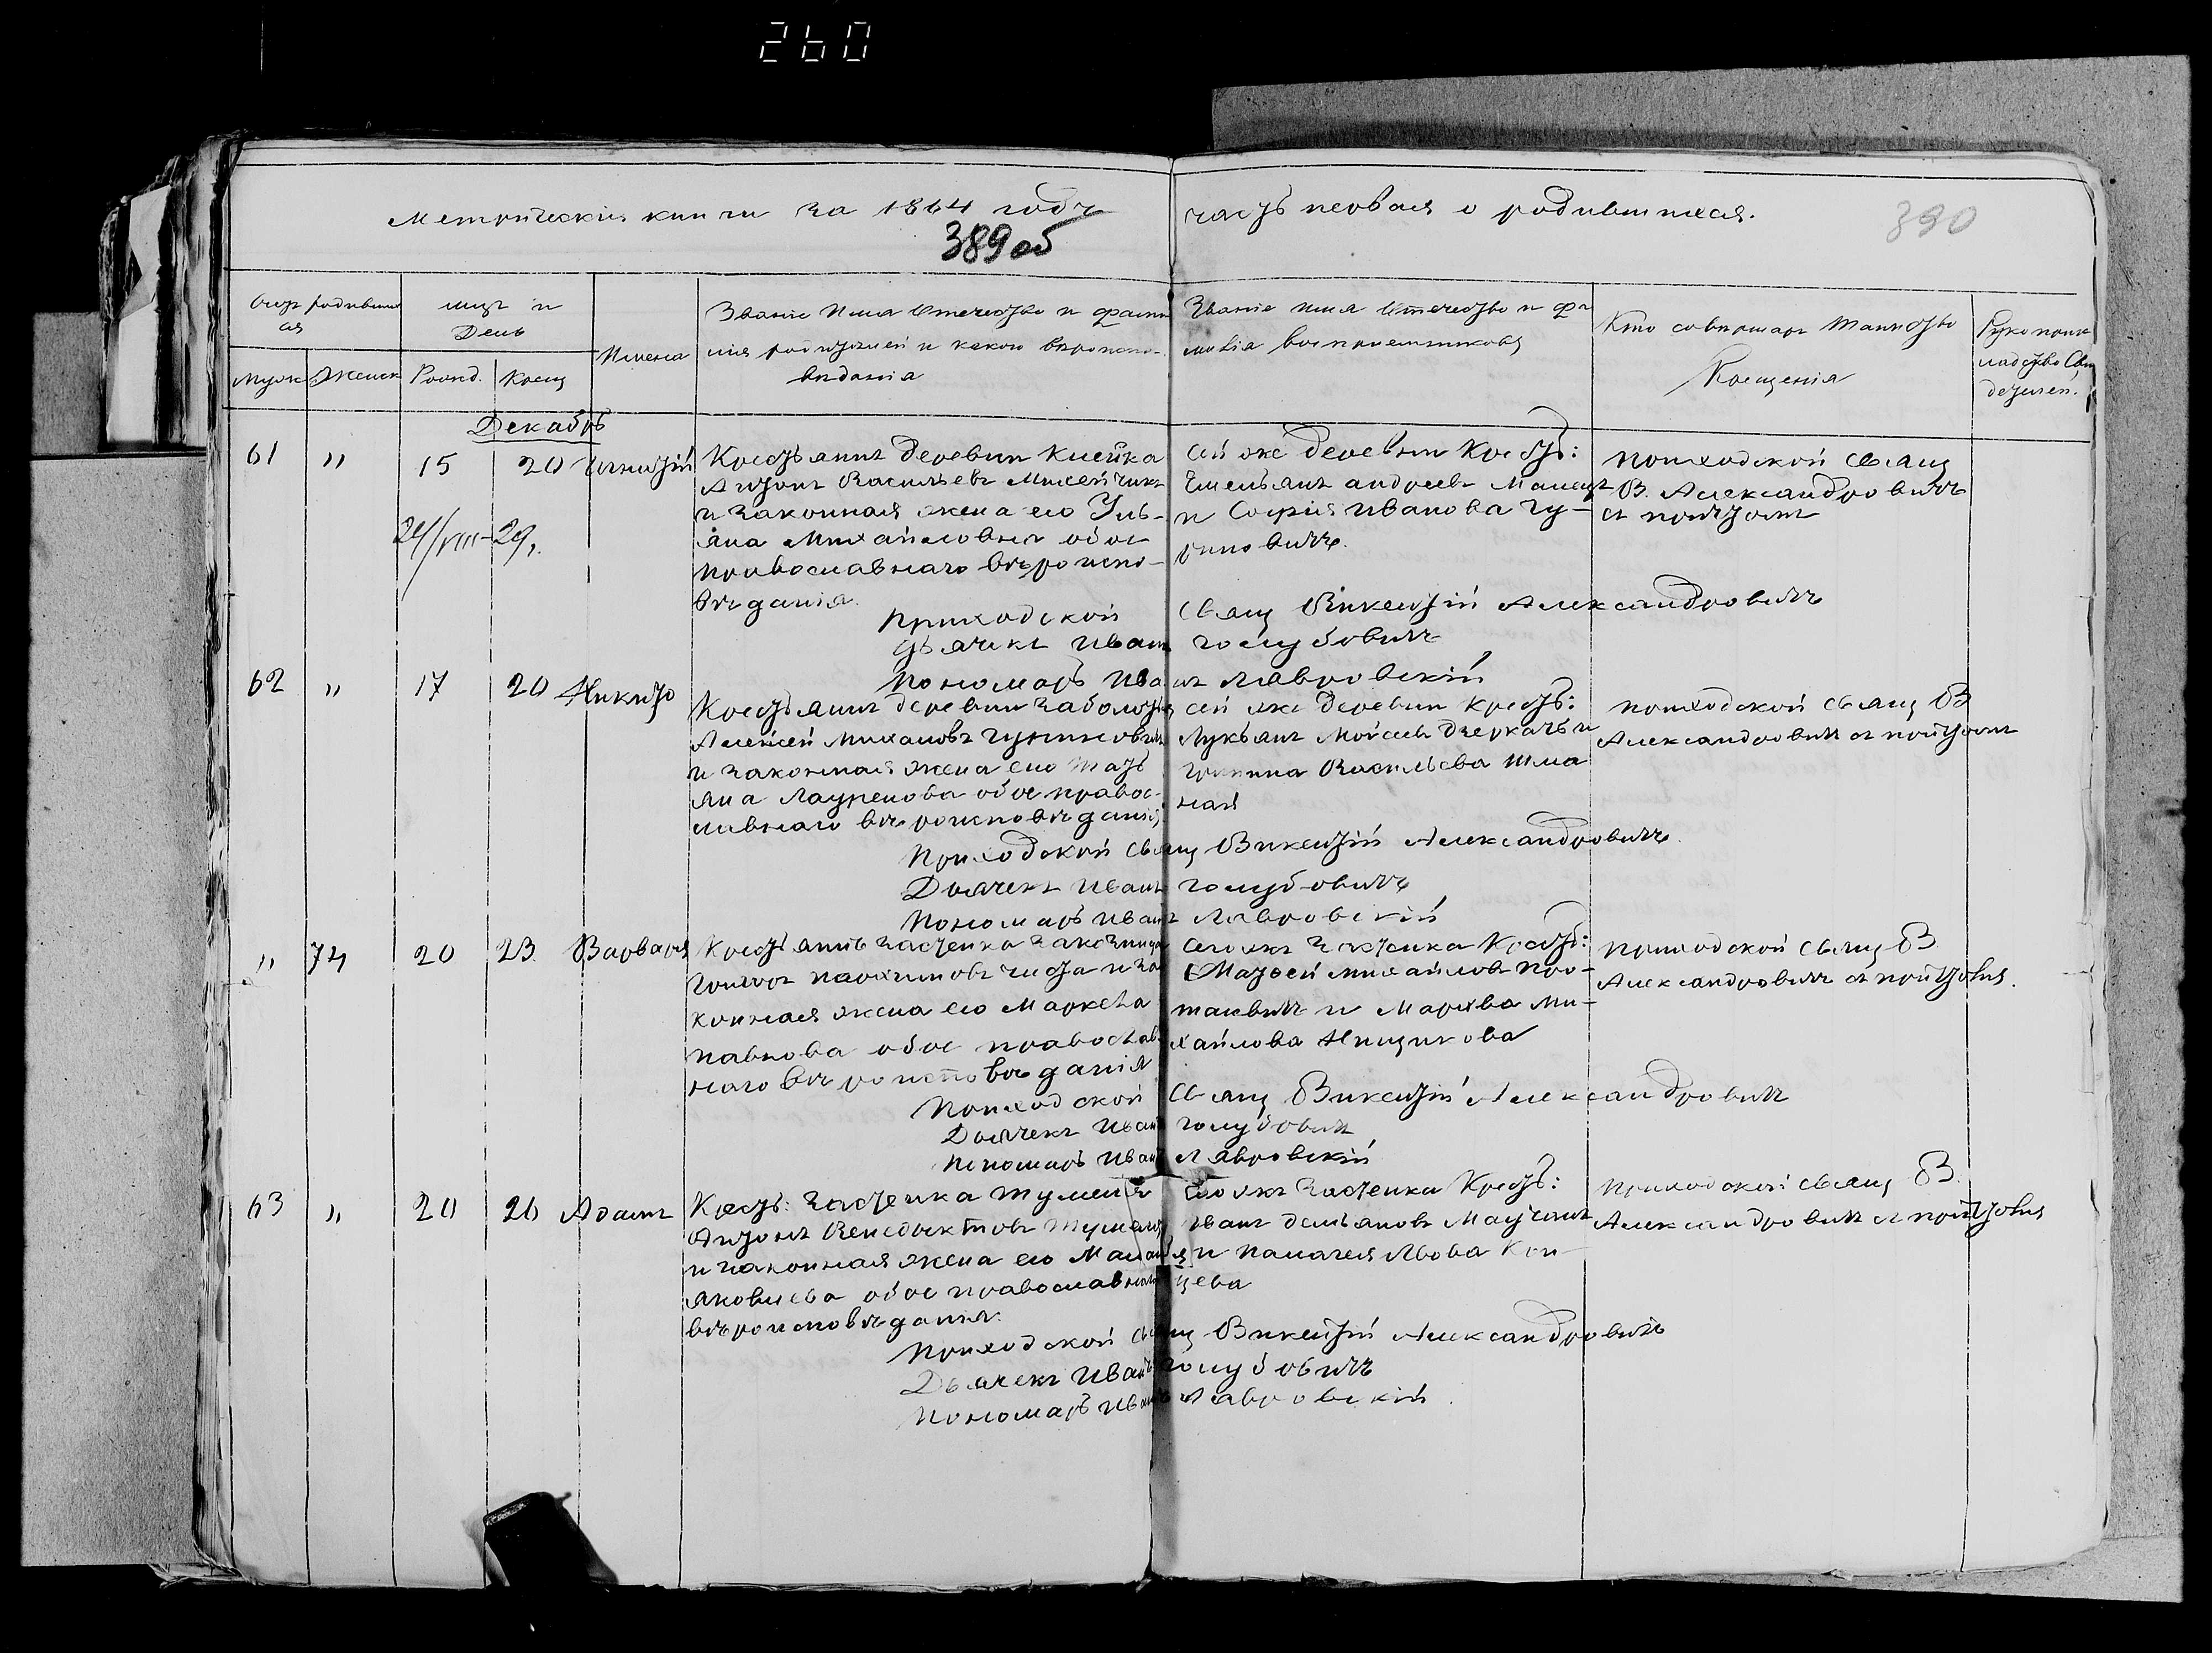 260
Метрическія книги за 1864 годъ часть первая о родившихся.
389 об
390
Счет родивших
ся
Муж Женск
мцъ и
День
Рожд. Крещ
Имена
Званіе Имя Отечество и фами
лія родителей и какого вѣроиспо-
веданія
Званіе имя Отечество и фа
милія воспріемниковъ
Кто совершалъ таинство
Крещенія
Рукопрік
ладство Сви
детелей.
Декабрь
61 " 15 20 Игнатій
24/VIII-29.
Крестьянинъ деревни Клейка
Антонъ Васильевъ Мисейчикъ
и законная жена его Уль-
яна Михайловна обое
православнаго вѣроиспо-
вѣданія.
Сей же деревни Крестъ:
Емельянъ Андреевъ
и Софія Иванова Чу-
риловичъ.
Приходской Свящ
В. Александровичъ
съ причтомъ
Приходской Свящ Викентій Александровичъ
Дьячекъ Иванъ Голубовичъ
Пономарь Иванъ Лавровскій
62 " 17 20 Никита
Крестьянинъ деревни Заболотья
Алексей Михаловъ
и законная жена его Тать
яна Лауренова обое правос-
лавнаго вѣроисповѣданія,
сей же деревни Крестъ:
Лукьянъ Мойсеевъ Дзеркачъ и
Васильева Шма
ная
Приходской Свящ В
Александровичъ съ причтомъ
Приходской Свящ Викентій Александровичъ
Дьячекъ Иванъ Голубовичъ
Пономарь Иванъ Лавровскій
" 74 20 23. Варвара
Крестьянинъ Застенка
Григоръ Пархимовъ Чиста и за
конная жена его Маркела
Павлова обое православ
наго вѣроисповѣданія
Сего же Застенка Крестъ:
Матвей Михайловъ Про-
ташвичъ и Марѳва Ми-
хайлова
Приходской Свящ В
Александровичъ съ причтомъ.
Приходской Свящ Викентій Александровичъ
Дьячекъ Иванъ Голубовичъ
Пономарь Иванъ Лавровскій
63 " 20 26 Адамъ
Крестъ: Застенка
Антонъ Венедыктовъ
и законная жена его Маланья
Яковлева обое православнаго
вѣроисповѣданія.
Сего же Застенка Крестъ:
Иванъ Демьяновъ
и Палагея Львова Кон
цева
Приходской Свящ В.
Александровичъ съ причтомъ
Приходской Свящ Викентій Александровичъ
Дьячекъ Иванъ Голубовичъ
Пономарь Иванъ Лавровскій.